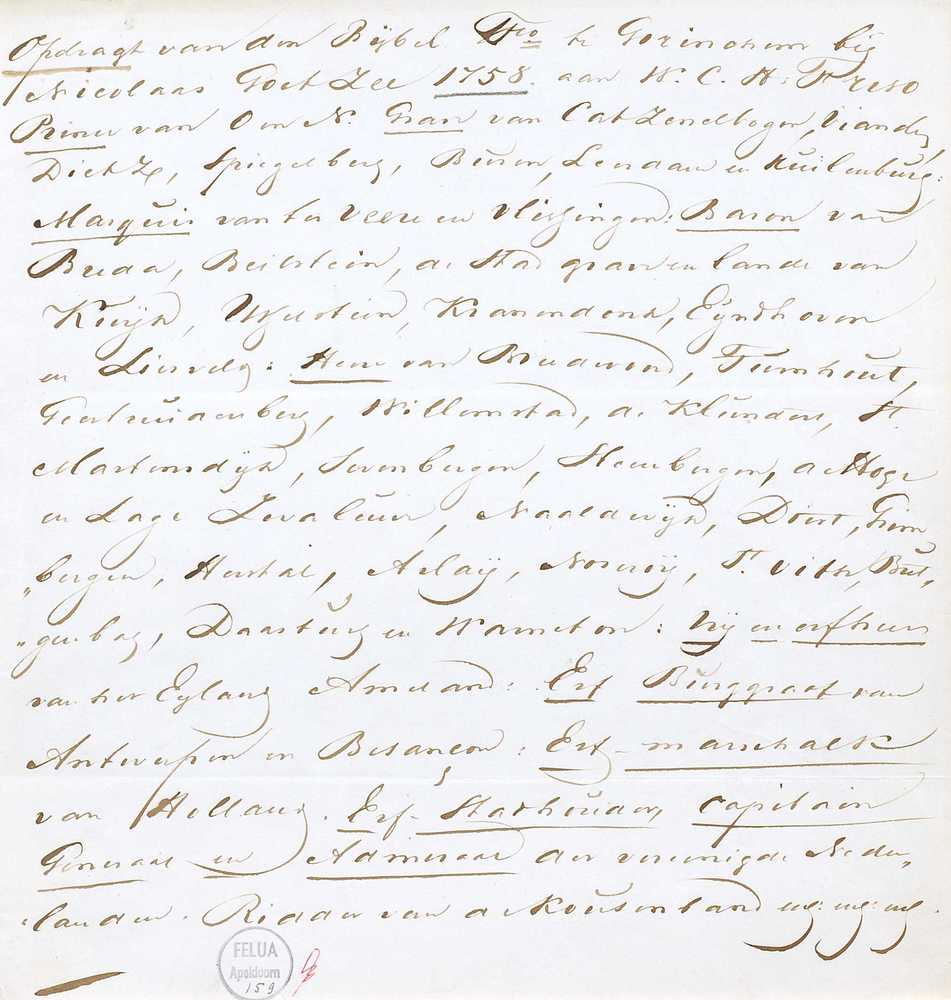 Opdragt van den Bijbel Fio te Gorinchem bij
Nicolaas Goetzee 1758. aan W. C. H. Friso
Prins van Oon N. Graav van Catzenelbogen, Vianden,
Dietz, Spiegelberg, Buren, Leerdam en Kuilenburg:
Marquis van ter Veere en Vlissingen: Baron van
Breda, Beilstein, de Stad grave en lande van
Kuijk, IJselstein, Kranendonk, Eyndhoven
en Liesveld: Heer van Bredevoord, Turnhout,
Geertruidenberg, Willemstad, de Klundert, St.
Martensdijk, Sevenbergen, Steenbergen, de Hoge
en Lage Zwaluwe, Naaldwijk, Diest, Grim
„bergen, Herstal, Arlay, Noseroy, St. Vith, But„
„genbag, Daasburg en Warneton: Vrij en erfheer
van het Eyland Ameland: Erf Burggraaf van
Antwerpen en Besançon: Erf-marschalk
van Holland. Erf-Stadhouder, Capitain
Generaal en Admiraal der vereenigde Neder„
„landen. Ridder van de Kousenband enz: enz: enz.
FELUA
Apeldoorn
159